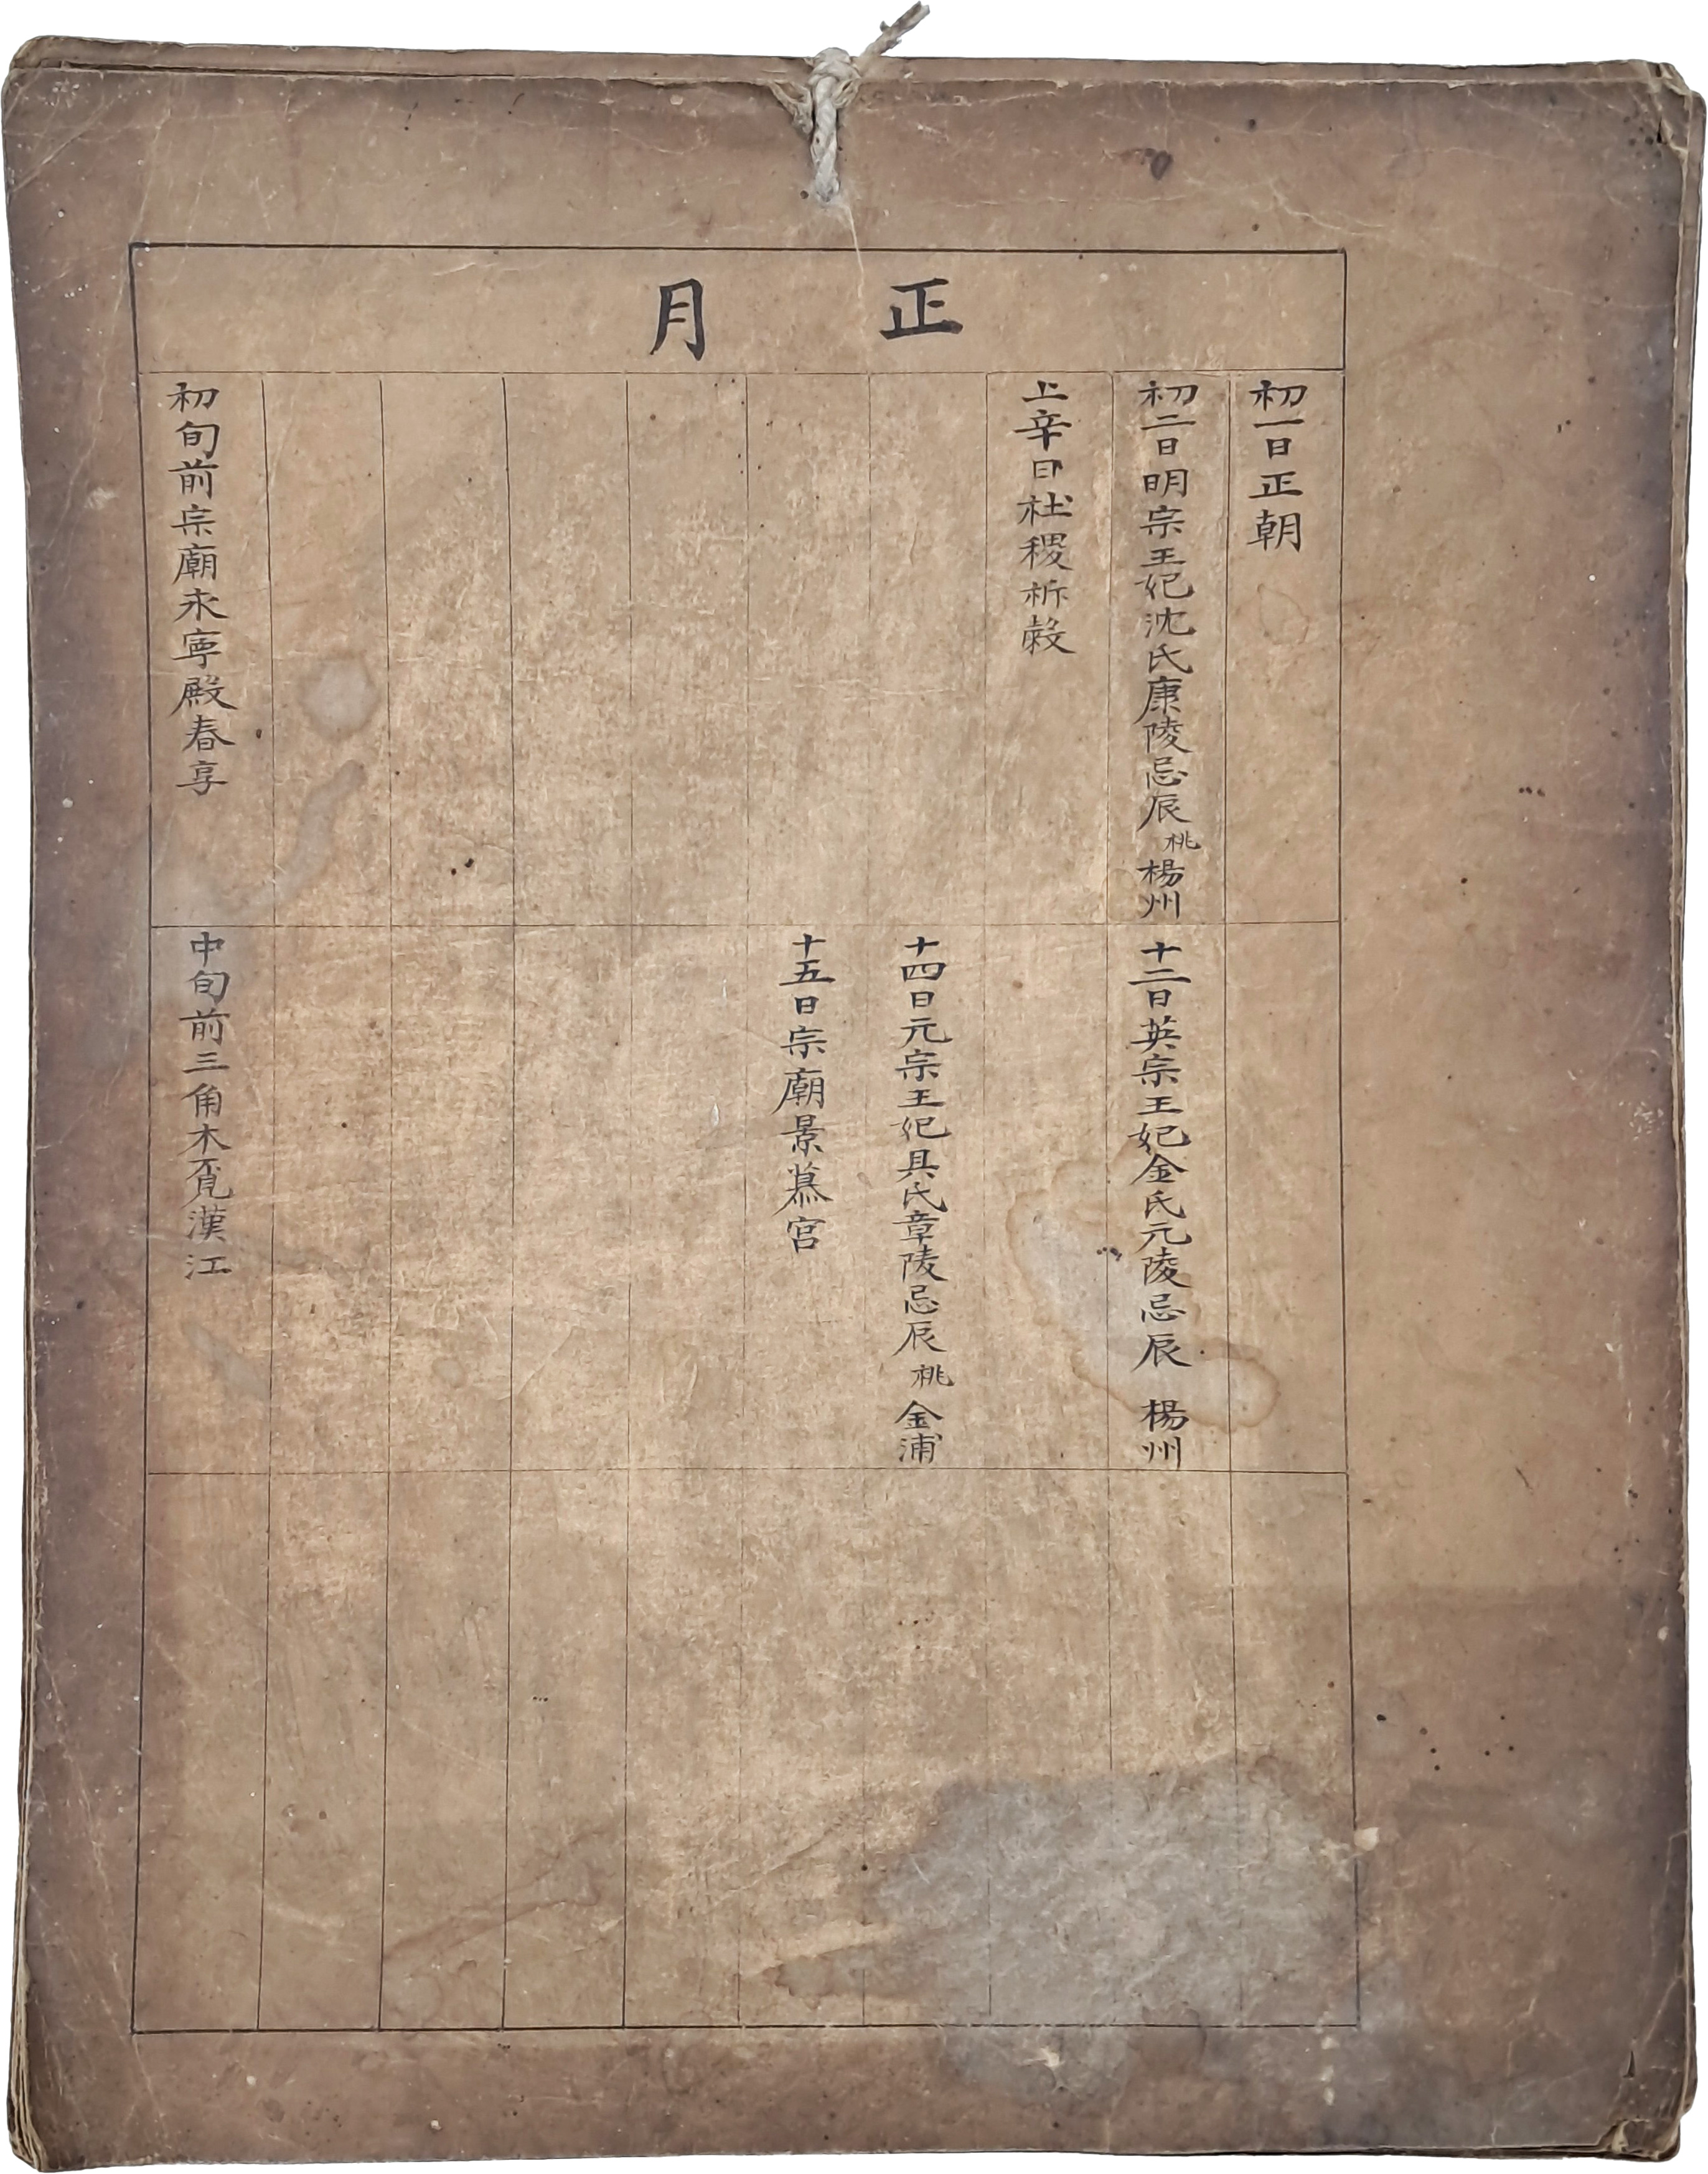 正月
初一日正朝
初二日明宗王妃沈氏康陵忌辰祧楊州
上辛日社稷祈穀
初旬前宗廟永寧殿春享
十二日英宗王妃金氏元陵忌辰 楊州
十四日元宗王妃具氏章陵忌辰祧金浦
十五日宗廟景慕宮
中旬前三角木覓漢江